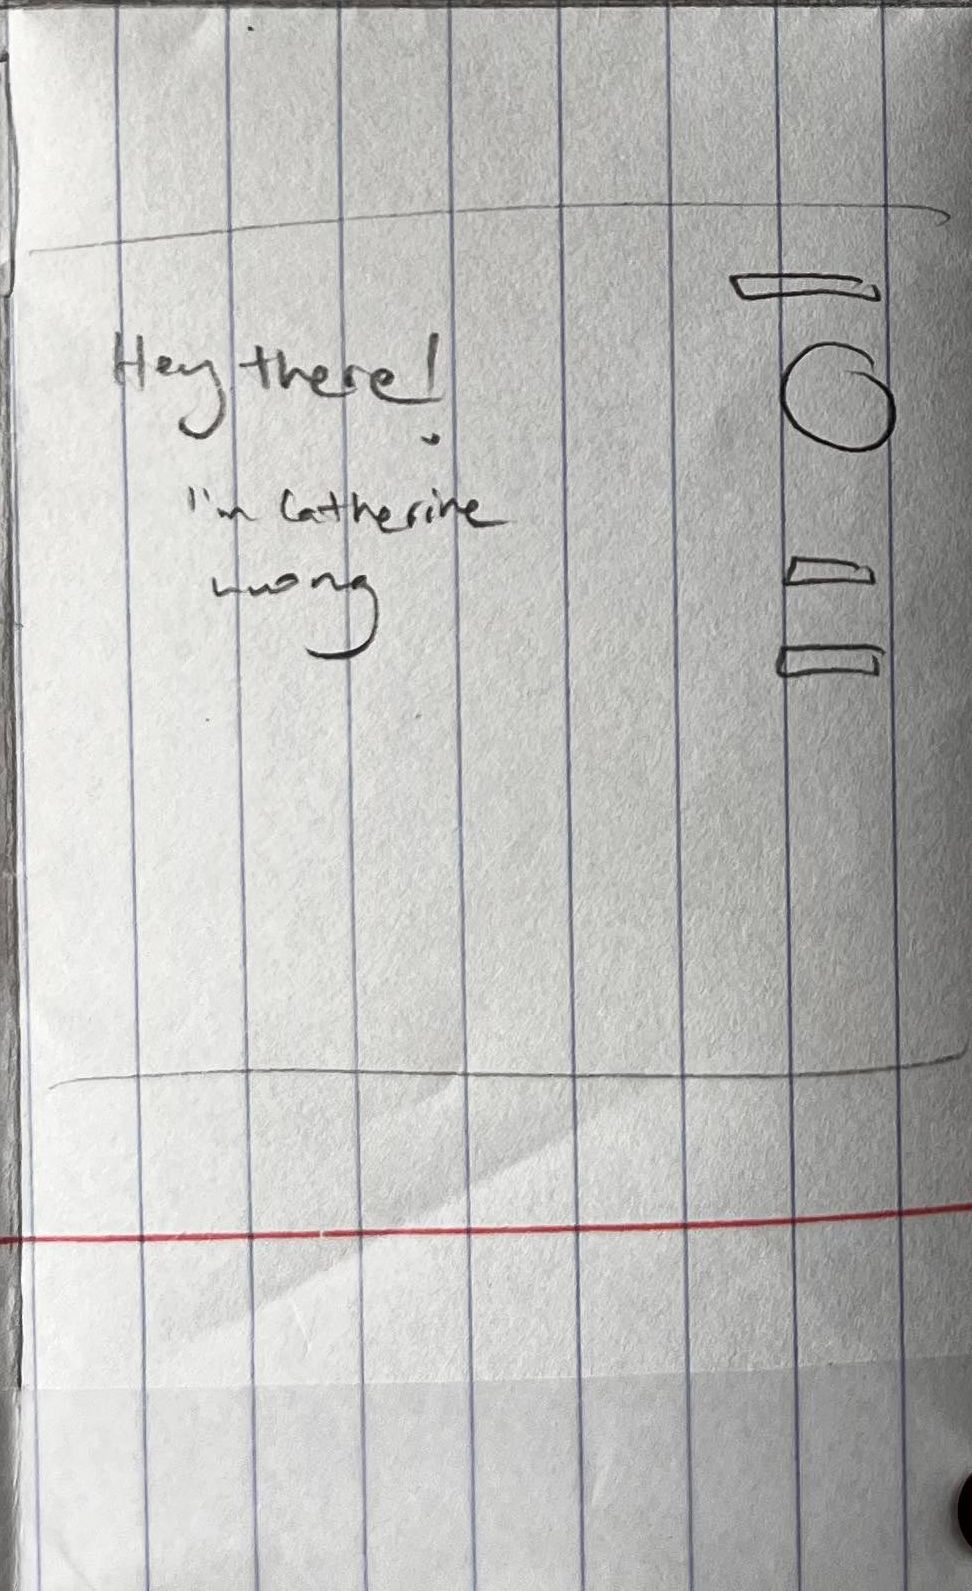 Hey there!
I'm Catherine
wong